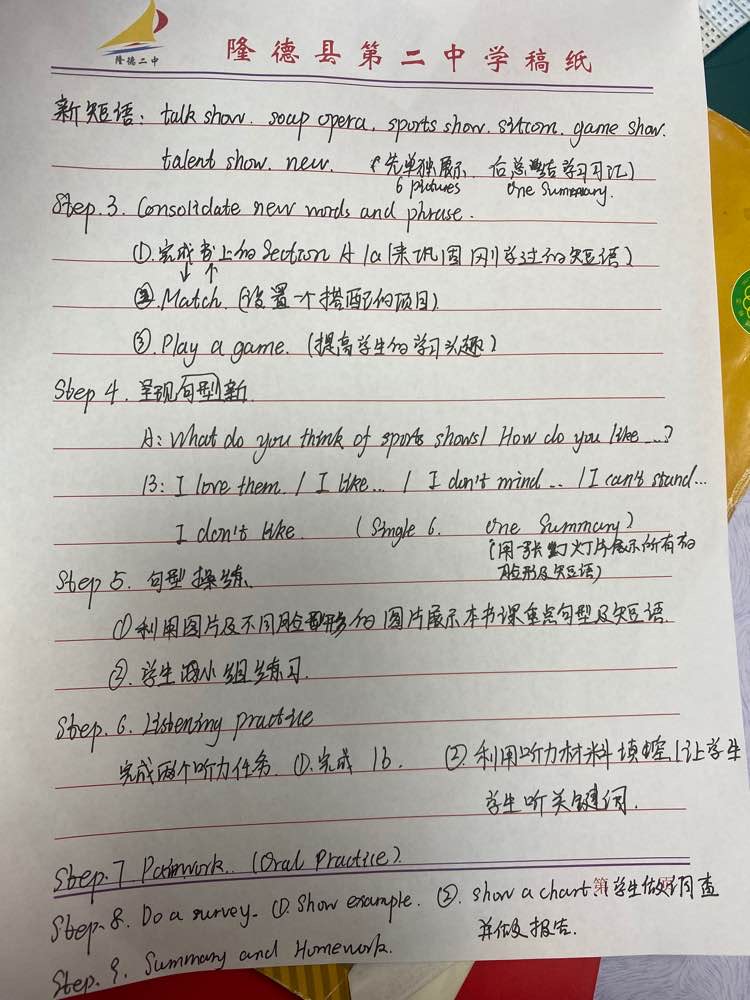 隆德二中
隆德县第二中学稿纸
新短语: talk show. soap opera. sports show. sitcom. game show.
talent show. new. (先单独展示 后总结学习习记)
6 pictures one Summary.
Step.3. Consolidate new words and phrase.
①.完成书上的Section A 1a(来巩固刚学过的短语)
②.Match. (设置一个搭配的项目)
③.Play a game. (提高学生的学习兴趣)
Step 4. 呈现句型新
A: What do you think of sports shows/ How do you like...?
B: I love them. / I like... / I don't mind... / I can't stand...
I don't like. (Single 6. one Summary)
(用一张幻灯片展示所有的
脸形及短语)
Step 5. 句型操练.
①利用图片及不同脸型形的图片展示本书课重点句型及短语.
②. 学生小组练习.
Step.6. Listening practice
完成两个听力任务. ①.完成 1b. ②.利用听力材料填空(让学生
学生听关键词.
Step.7 Pairwork. (Oral Practice).
Step.8. Do a survey. ①. Show example. ②. show a chart. 学生做调查
并做报告.
Step.9. Summary and Homework.